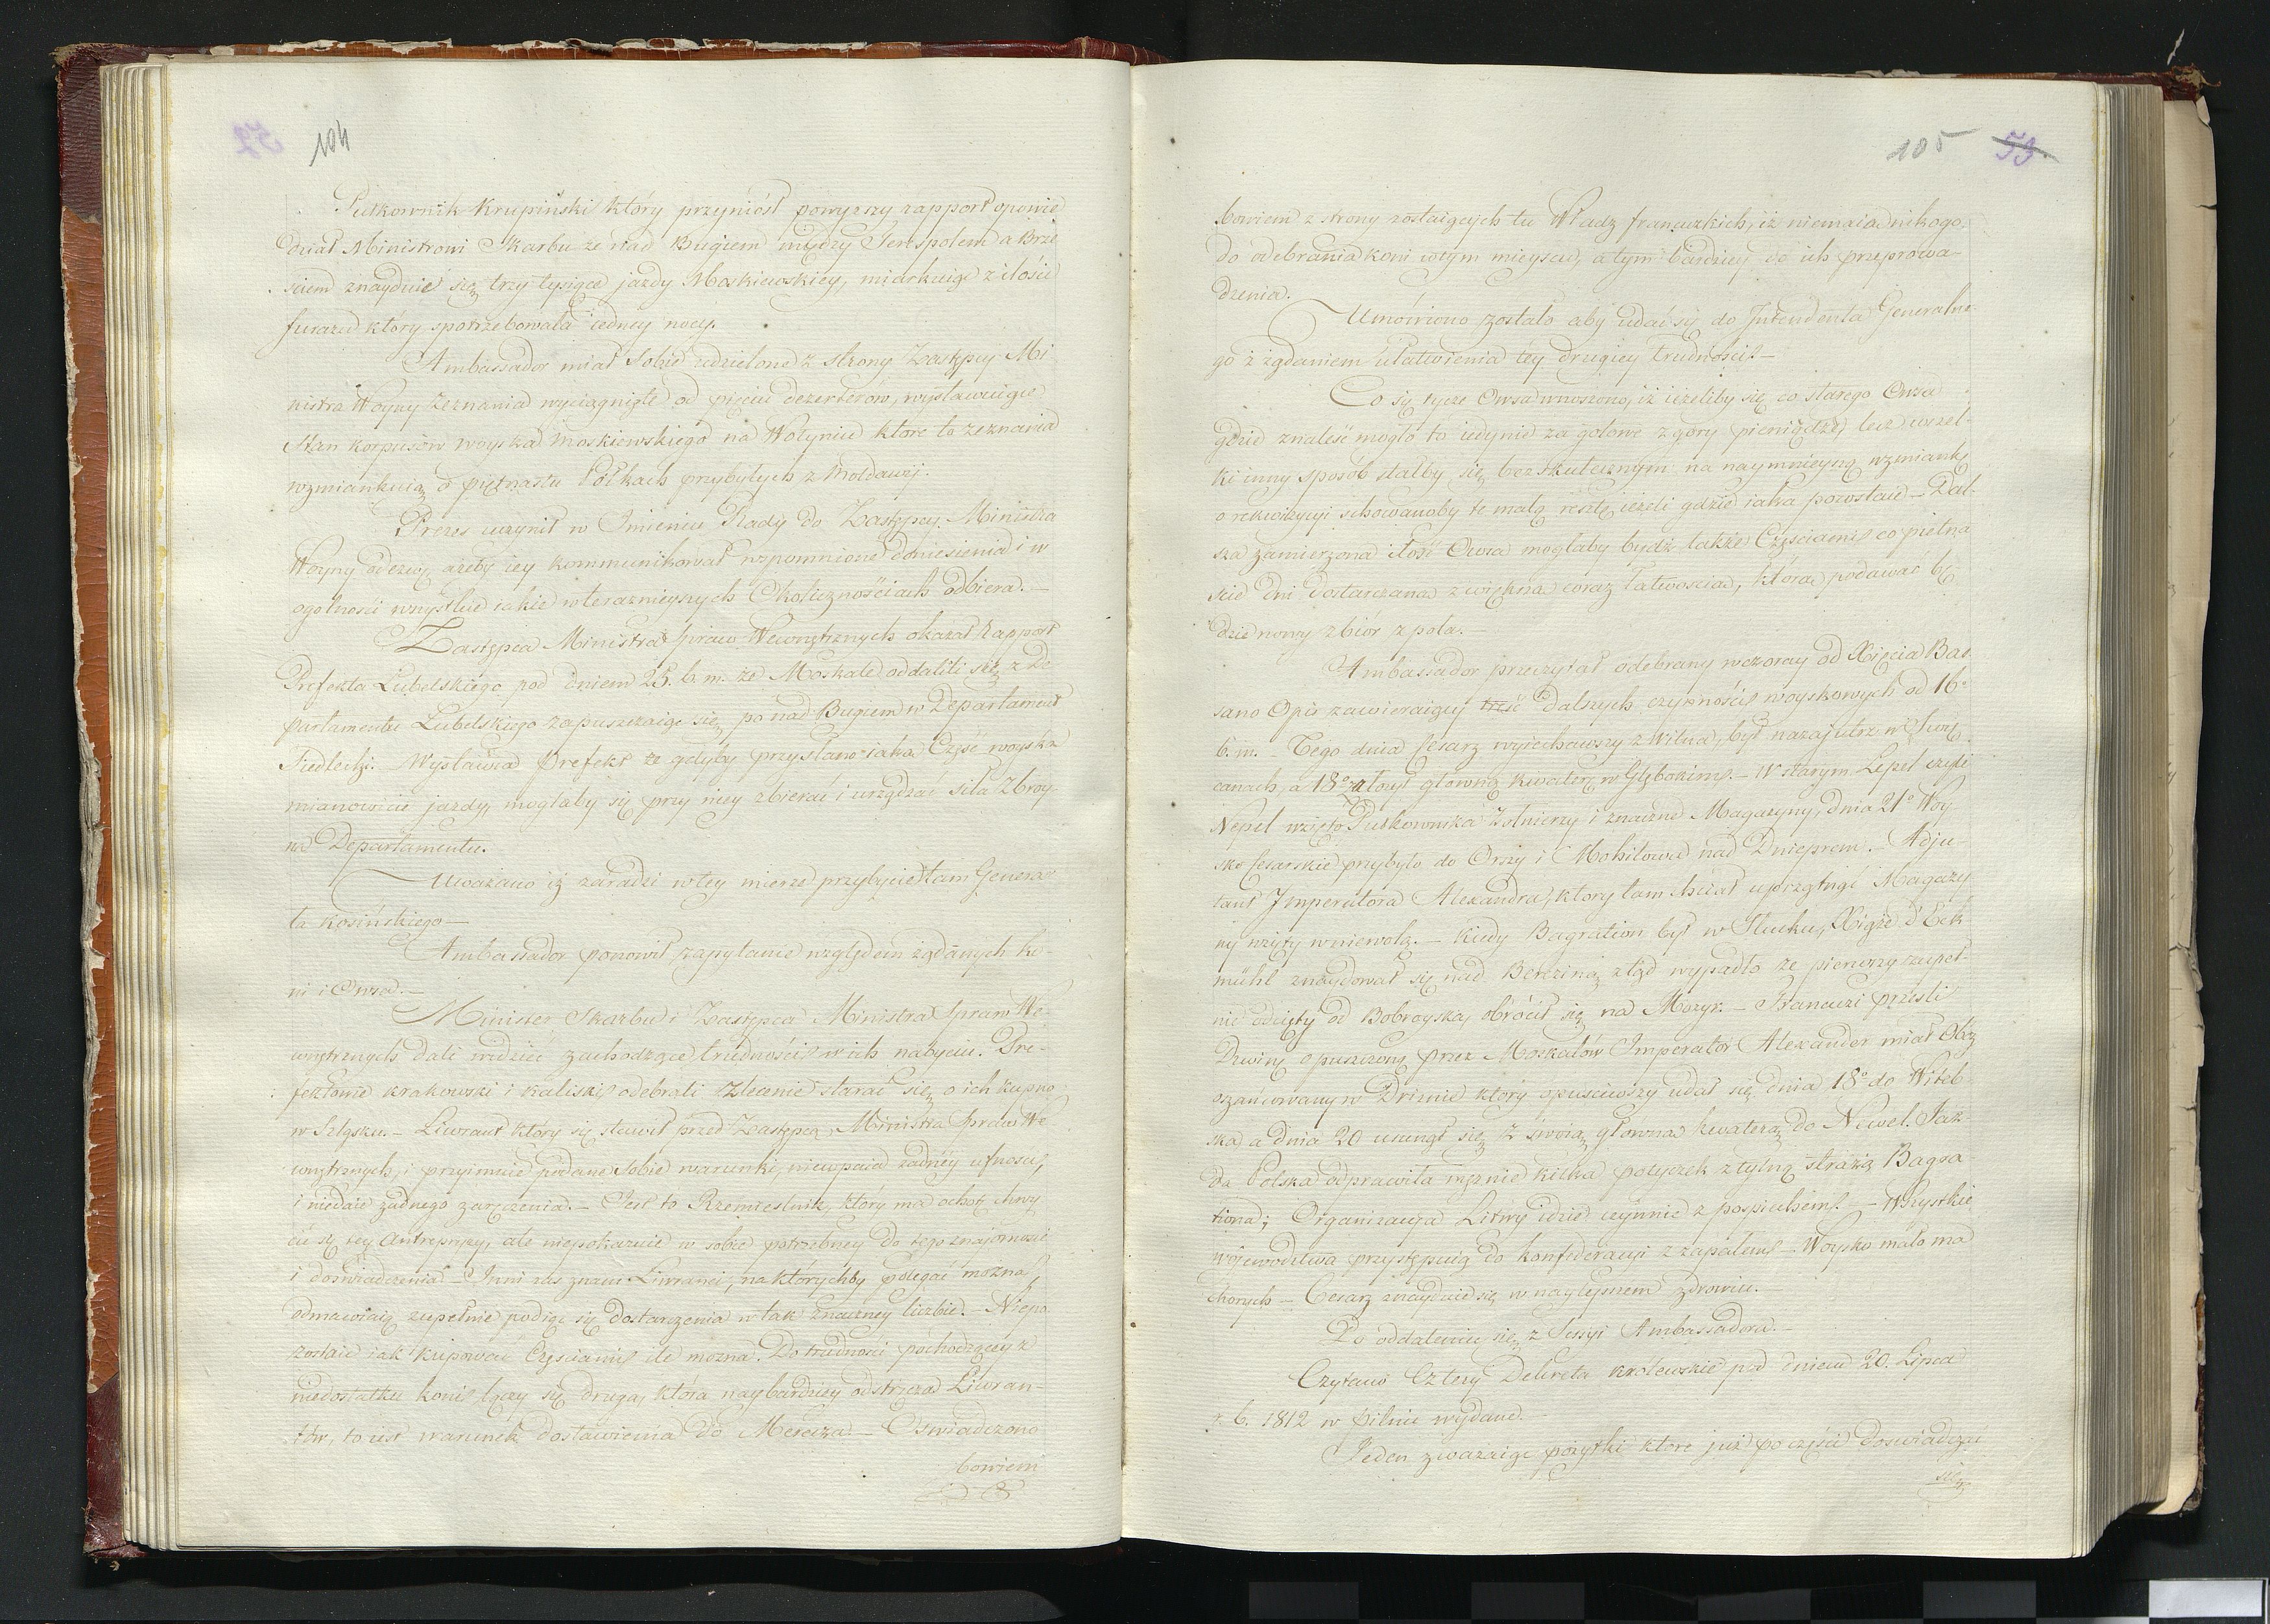 52
104
Pułkownik Krupiński który przyniósł powyższy rapport opowie
dział Ministrowi Skarbu że nad Bugiem między Terespolem a Brze
sciem znayduie się trzy tysiące jazdy Moskiewskiey, miarkuiąc z ilości
furażu który spotrzebowała iedney nocy.
Ambassador miał sobie udzielone z strony Zastępcy Mi
nistra Woyny zeznania wyciągnięte od pięciu dezerterów, wystawuiące
Stan korpusów woyska moskiewskiego na Wołyniu które to zeznania
wzmiankuią o piętnastu Półkach przybyłych z Mołdawij.
Prezes uczynił w Imieniu Rady do Zastępcy Ministra
Woyny odezwę ażeby iey kommunikował wzpomnione doniesienia i w
ogolności wszystkie iakie w teraznieyszych Okolicznościach odbiera. —
Zastępca Ministra Spraw Wewnętrznych okazał Rapport
Prefekta Lubelskiego pod dniem 25. b. m. że Moskale oddalili się z De
partamentu Lubelskiego zapuszczaiąc się po nad Bugiem w Departament
Siedlecki. — Wystawia Prefekt że gdyby przysłano iaką Część woyska
mianowicie jazdy, mogłaby się przy niey zbierać i urządzać siła zbroy
na Departamentu.
Uważano iż zaradzi w tey mierze przybycie tam Genera
ła Kosińskiego —
Ambassador ponowił zapytanie względem żądanych ko-
ni i Owsa. —
Minister Skarbu i Zastępca Ministra Spraw We
wnętrznych dali widzieć zachodzące trudności w ich nabyciu. Pre-
fektowie krakowski i kaliski odebrali zlecenie starać się o ich kupno
w Szląsku. — Liwerant który się stawił przed Zastępcą Ministra Spraw We
wnętrznych, i przyimuie podane sobie warunki, niewpaia żadnéy ufności,
i niedaie żadnego zaręczenia. — Jest to Rzemieslnik, który ma ochotę chwy
cić się tey Antrepryzy, ale niepokazuie w sobie potrzebney do tego znajomości
i doświadczenia — Inni zas znani Liweranci, na którychby polegać można,
odmawiaią zupełnie podiąć się dostarczenia w tak znaczney liczbie. — Niepo
zostaie iak kupować Częściami ile można. Do trudności pochodzącey z
niedostatku koni łączy się druga, która naybardziey odstręcza Liweran-
tów, to iest warunek dostawienia do Merecza — Oświadczono
bowiem
105 53
bowiem z strony zostaiących tu Władz francuzkich, iż niemaią nikogo
do odebrania koni w tym mieyscu, a tym bardziey do ich przeprowa-
dzenia.
Umówiono zostało aby udać się do Intendenta Generalne
go z żądaniem ułatwienia tey drugiey trudności. —
Co się tycze Owsa wnoszono, iż ieżeliby się co starego Owsa
gdzie znaleść mogło to iedynie za gotowe z góry pieniądze, lecz wszel-
ki inny sposób stałby się bezskutecznym na naymnieyszą wzmiankę
o rekwizycyi schowanoby tę małą resztę ieżeli gdzie iaka pozostaie — Dal-
sza zamierzona ilość Owsa mogłaby bydź także Częściami co piętna
ście dni dostarczana z większą coraz łatwością, którą podawać bę
dzie nowy zbiór z pola.
Ambassador przeczytał odebrany wczoray od Xięcia Bas
sano Opis zawieraiący treść dalszych czynności woyskowych od 16°
b. m. Tego dnia Cesarz wyiechawszy z Wilna, był nazajutrz w Swię
canach, a 18° założył główną kwaterę w Głębokim. — W starym Lepel czyli
Nepel wzięto Pułkownika Żołnierzy i znaczne Magazyny, dnia 21° Woy
sko Cesarskie przybyło do Orszy i Mohilowa nad Dnieprem. — Adju-
tant Imperatora Alexandra, który tam chciał uprzątnąć Magazy
ny wzięty w niewolą. — Kiedy Bagration był w Słucku, Xiąże d'Eck
mühl znaydował się nad Berezyną ztąd wypadło że pierwszy zupeł-
nie odcięty od Bobruyska, obrócił się na Mozyr. — Francuzi przeszli
Dzwinę opuszczoną przez Moskalów Imperator Alexander miał Obóz
oszańcowany w Drissie który opuściwszy udał się dnia 18° do Witeb
ska a dnia 20 usunął się z swoią główną kwaterą do Newel. Jaz-
da Polska odprawiła mężnie kilka potyczek z tylną strażą Bagra
tiona; Organizacya Litwy idzie czynnie z pospiechem. — Wszystkie
województwa przystępuią do konfederacyi z zapałem. — Woysko mało ma
chorych — Cesarz znayduie się w naylepszem zdrowiu. —
Po oddaleniu się z Sessyi Ambassadora.
Czytano Cztery Dekreta królewskie pod dniem 20. Lipca
r. b. 1812 w Pilnic wydane. —
Jeden zważaiąc pożytki które już po części doswiadczy
się